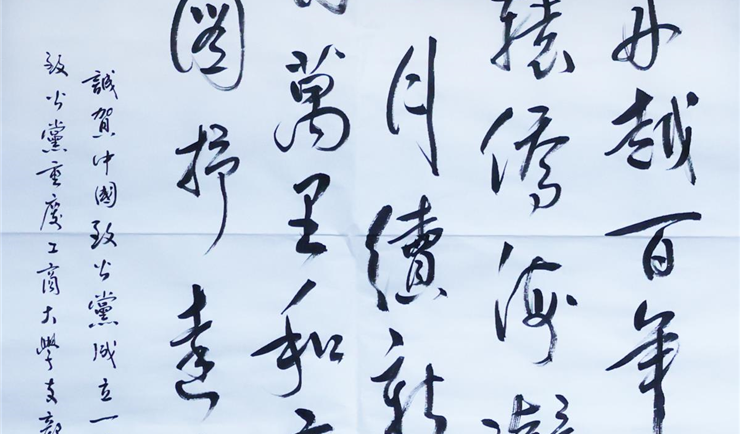 丹越百年
轅僑海凝
月續新
萬里和
圖抒遠
誠賀中國致公黨成立一
致公黨重慶工商大學支部